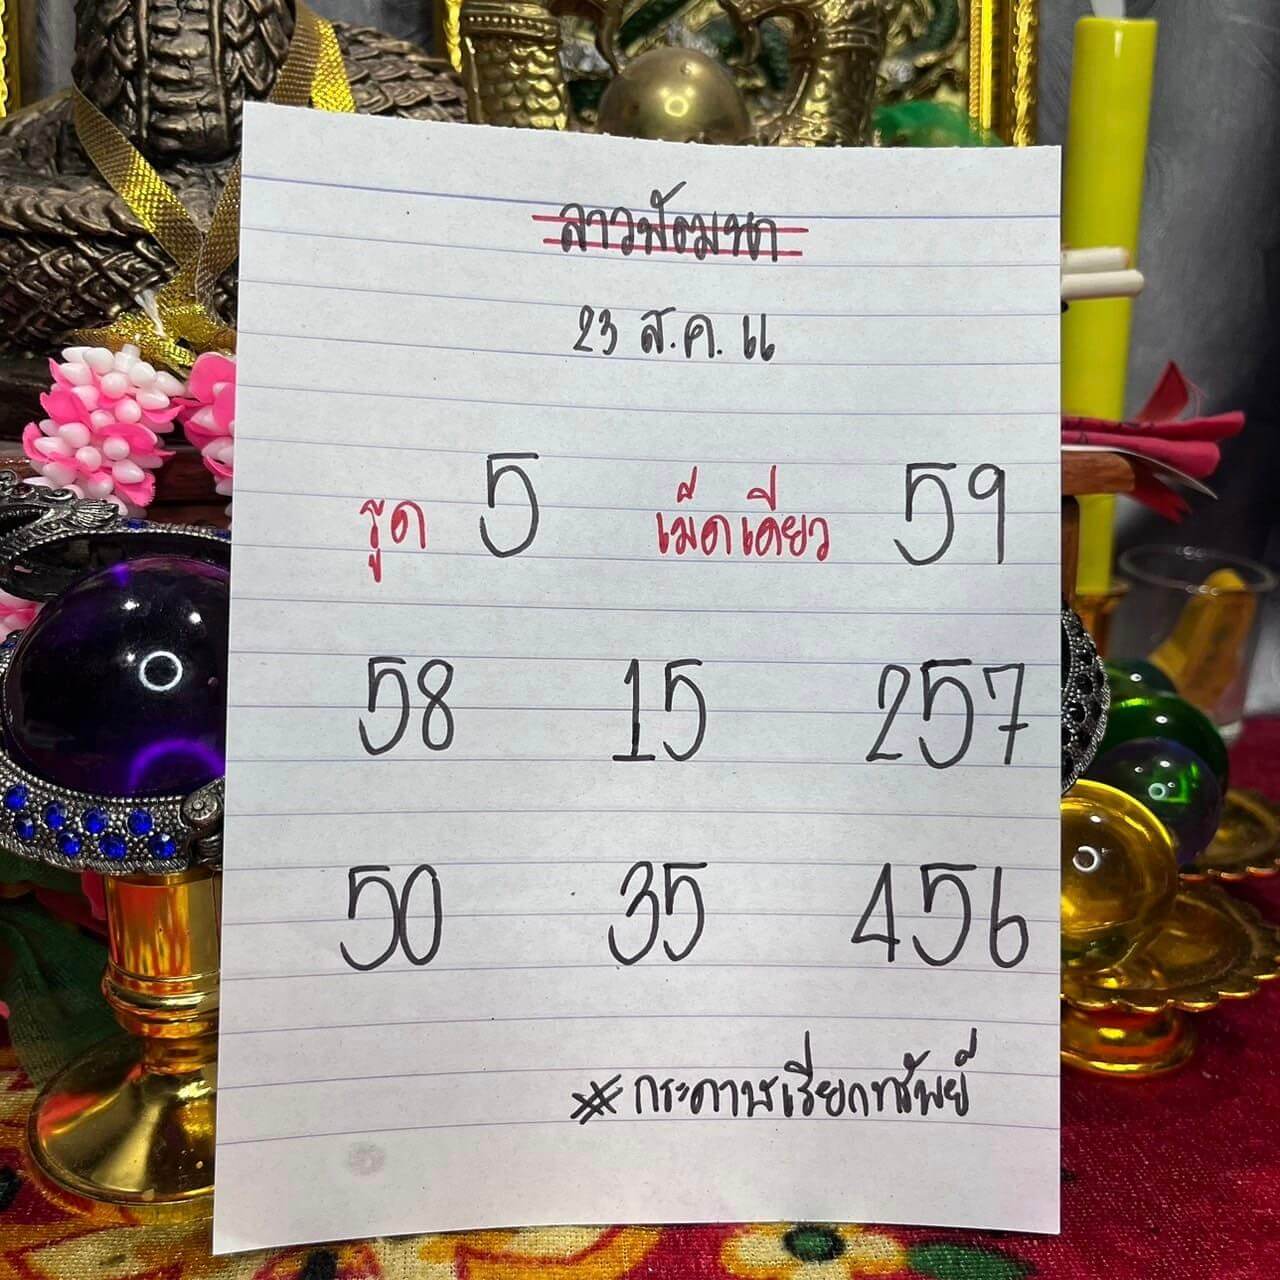 ลาวพัฒนา
23 ส.ค. 66
รูด 5 เม็ดเดียว 59
58 15 257
50 35 456
#กระดาษเรียกทรัพย์